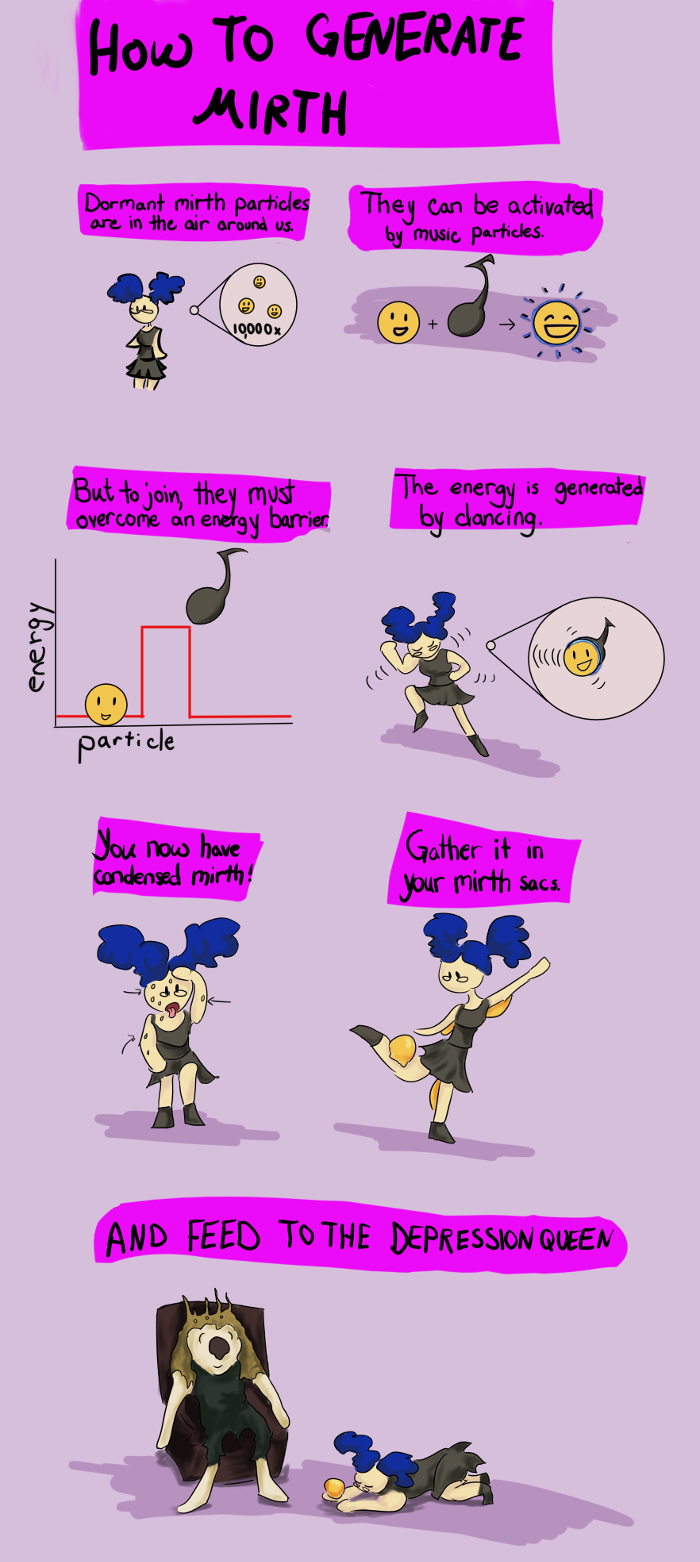 HOW TO GENERATE
MIRTH
Dormant mirth particles
are in the air around us.
They can be activated
by music particles.
10,000x
+
→
But to join, they must
overcome an energy barrier.
The energy is generated
by dancing.
energy
particle
You now have
condensed mirth!
Gather it in
your mirth sacs.
AND FEED TO THE DEPRESSION QUEEN